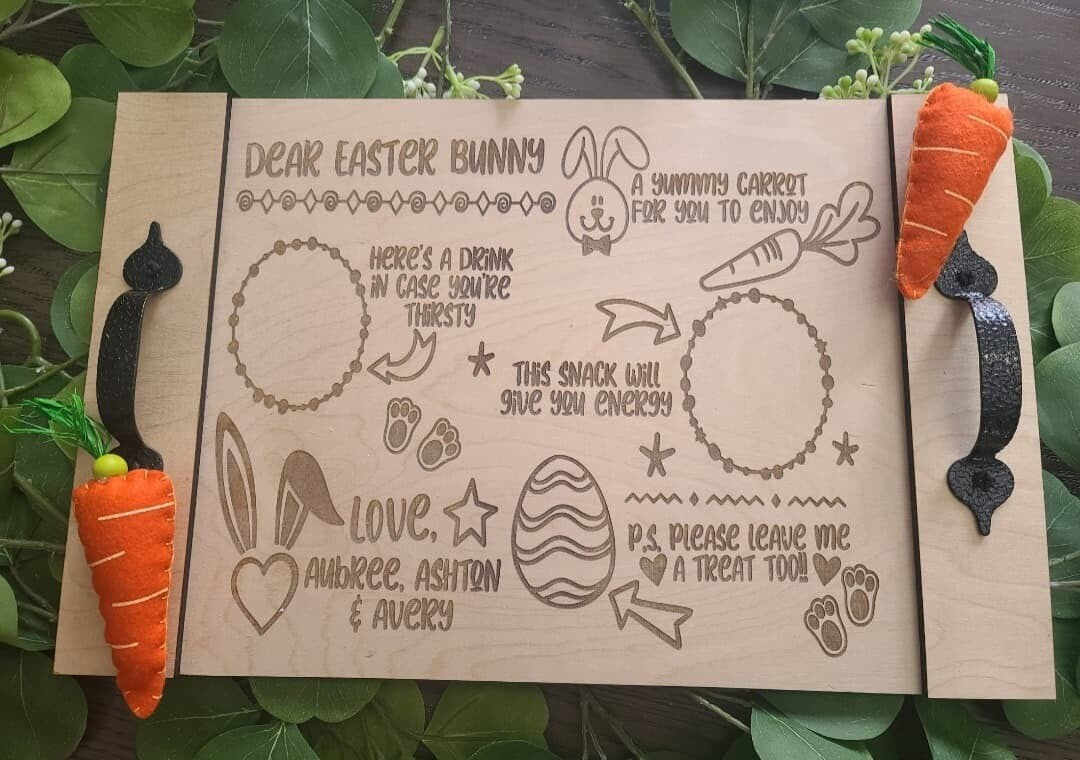 DEAR EASTER BUNNY
A YUMMY CARROT
FOR YOU TO ENJOY
HERE'S A DRINK
IN CASE YOU'RE
THIRSTY
THIS SNACK WILL
GIVE YOU ENERGY
LOVE,
AUBREE, ASHTON
& AVERY
P.S. PLEASE LEAVE ME
A TREAT TOO!!